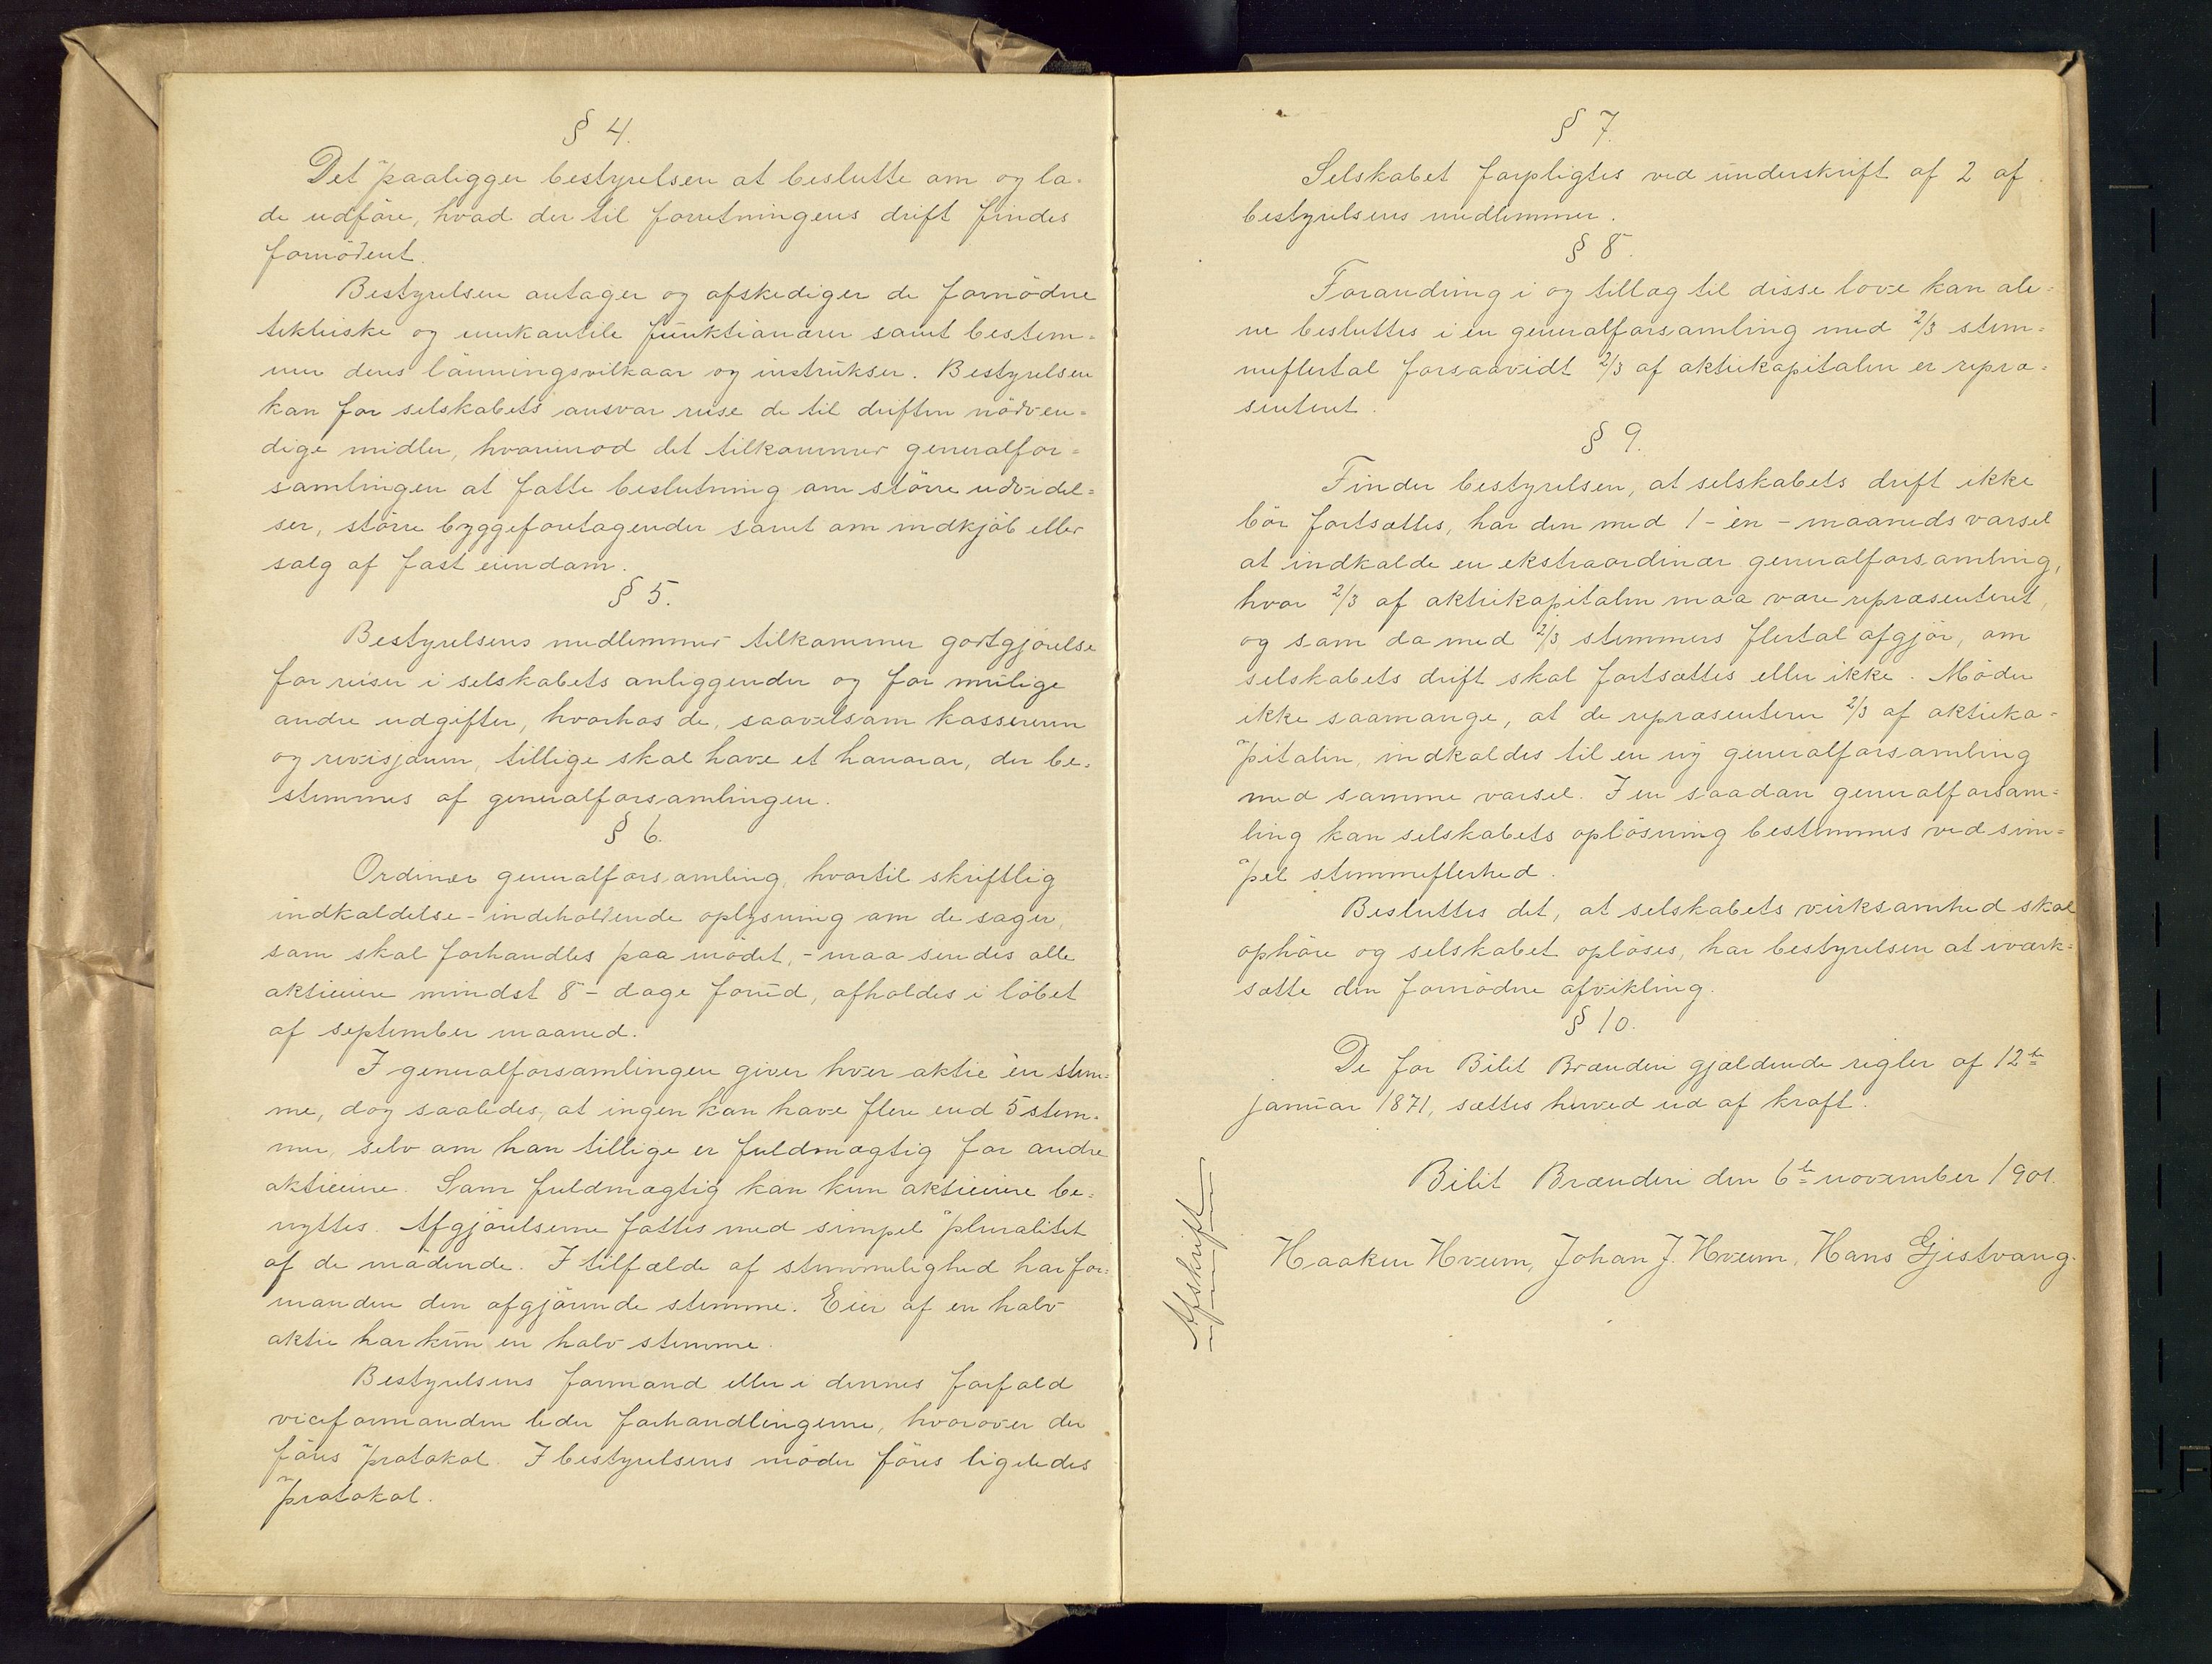 § 4.
Det paaligger bestyrelsen at beslutte om og la-
de udföre, hvad der til forretningens drift findes
fornödent.
Bestyrelsen antager og afskediger de fornödne
tekniske og merkantile funktionærer samt bestem-
mer deres lönningsvilkaar og instrukser. Bestyrelsen
kan for selskabets ansvar reise de til driften nödven-
dige midler, hvorimod det tilkommer generalfor-
samlingen at fatte beslutning om större udvidel-
ser, större byggeforetagender samt om indkjöb eller
salg af fast eiendom.
§ 5.
Bestyrelsens medlemmer tilkommer godtgjörelse
for reiser i selskabets anliggender og for mulige
andre udgifter, hvorhos de, saavelsom kassereren
og revisjonen, tillige skal have et honorar, der be-
stemmes af generalforsamlingen.
§ 6.
Ordinær generalforsamling, hvortil skriftlig
indkaldelse - indeholdende oplysning om de sager,
som skal forhandles paa mödet, - maa sendes alle
aktieeiere mindst 8 - dage forud, afholdes i löbet
af september maaned.
I generalforsamlingen giver hver aktie èn stem-
me, dog saaledes, at ingen kan have flere end 5 stem-
mer, selv om han tillige er fuldmægtig for andre
aktieeiere. Som fuldmægtig kan kun aktieeiere be-
nyttes. Afgjörelserne fattes med simpel pluralitet
af de mödende. I tilfælde af stemmelighed har for-
manden den afgjörende stemme. Eier af en halv
aktie har kun en halv stemme.
Bestyrelsens formand eller i dennes forfald
viceformanden leder forhandlingerne, hvorover der
föres protokol. I bestyrelsens möder föres ligeledes
protokol.
§ 7.
Selskabet forpligtes ved underskrift af 2 af
bestyrelsens medlemmer.
§ 8.
Forandring i og tillæg til disse love kan ale-
ne besluttes i en generalforsamling med 2/3 stem-
meflertal forsaavidt 2/3 af aktiekapitalen er repræ-
senteret.
§ 9.
Finder bestyrelsen, at selskabets drift ikke
bör fortsættes, har den med 1 - èn - maaneds varsel
at indkalde en ekstraordinær generalforsamling,
hvor 2/3 af aktiekapitalen maa være repræsenteret,
og som da med 2/3 stemmers flertal afgjör, om
selskabets drift skal fortsættes eller ikke. Möder
ikke saamange, at de repræsenterer 2/3 af aktieka-
pitalen, indkaldes til en ny generalforsamling
med samme varsel. I en saadan generalforsam-
ling kan selskabets oplösning bestemmes ved sim-
pel stemmeflerhed.
Besluttes det, at selskabets virksomhed skal
ophöre og selskabet oplöses, har bestyrelsen at iværk-
sætte den fornödne afvikling.
§ 10.
De for Bilit Brænderi gjældende regler af 12te
januar 1871, sættes herved ud af kraft.
Bilit Brænderi den 6te november 1901.
Haaken Hveem, Johan J. Hveem, Hans Gjestvang.
Afskrift